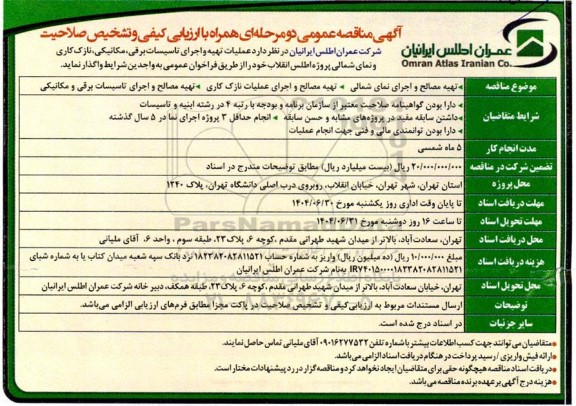 آگهی مناقصه عمومی دو مرحله‌ای همراه با ارزیابی کیفی و تشخیص صلاحیت
شرکت عمران اطلس ایرانیان در نظر دارد عملیات تهیه و اجرای تاسیسات برقی، مکانیکی، نازک کاری
و نمای شمالی پروژه اطلس انقلاب خود را از طریق فراخوان عمومی به واجدین شرایط واگذار نماید.
عمران اطلس ایرانیان
Omran Atlas Iranian Co.
موضوع مناقصه
تهیه مصالح و اجرای نمای شمالی تهیه مصالح و اجرای عملیات نازک کاری تهیه مصالح و اجرای تاسیسات برقی و مکانیکی
شرایط متقاضیان
دارا بودن گواهینامه صلاحیت معتبر از سازمان برنامه و بودجه با رتبه ۴ در رشته ابنیه و تاسیسات
داشتن سابقه مفید در پروژه‌های مشابه و حسن سابقه انجام حداقل ۲ پروژه اجرای نما در ۵ سال گذشته
دارا بودن توانمندی مالی و فنی جهت انجام عملیات
مدت انجام کار
۵ ماه شمسی
تضمین شرکت در مناقصه
۲۰/۰۰۰/۰۰۰/۰۰۰ ریال (بیست میلیارد ریال) مطابق توضیحات مندرج در اسناد
محل پروژه
استان تهران، شهر تهران، خیابان انقلاب، روبروی درب اصلی دانشگاه تهران، پلاک ۱۲۴۰
مهلت دریافت اسناد
تا پایان وقت اداری روز یکشنبه مورخ ۱۴۰۴/۰۶/۳۰
مهلت تحویل اسناد
تا ساعت ۱۶ روز دوشنبه مورخ ۱۴۰۴/۰۶/۳۱
محل دریافت اسناد
تهران، سعادت‌آباد، بالاتر از میدان شهید طهرانی مقدم، کوچه ۶، پلاک ۲۳، طبقه سوم، واحد ۶، آقای ملیانی
هزینه دریافت اسناد
مبلغ ۱۰/۰۰۰/۰۰۰ ریال (ده میلیون ریال) واریز به شماره حساب ۱۸۲۳۸۲۰۸۲۸۱۱۵۲۱ نزد بانک سپه شعبه میدان کتاب یا به شماره شبای
به‌نام شرکت عمران اطلس ایرانیان
محل تحویل اسناد
تهران، خیابان سعادت‌آباد، بالاتر از میدان شهید طهرانی مقدم، کوچه ۶، پلاک ۲۳، طبقه همکف، دبیرخانه شرکت عمران اطلس ایرانیان
توضیحات
ارسال مستندات مربوط به ارزیابی کیفی و تشخیص صلاحیت در پاکت مجزا مطابق فرم‌های ارزیابی الزامی می‌باشد.
سایر جزئیات
در اسناد درج شده است.
متقاضیان می توانند جهت کسب اطلاعات بیشتر با شماره تلفن ۰۹۰۱۶۲۷۷۵۳۲ آقای ملیانی تماس حاصل نمایند.
ارائه فیش واریزی / رسید پرداخت در هنگام دریافت اسناد الزامی می‌باشد.
دریافت اسناد مناقصه هیچگونه حقی برای متقاضیان ایجاد نخواهد کرد و مناقصه گزار در رد پیشنهادات مختار است.
هزینه درج آگهی بر عهده برنده مناقصه می‌باشد.